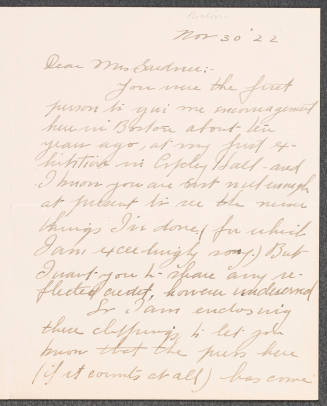 Boston
Nov 30 '22
Dear Mrs Gardner:-
You were the first
person to give me encouragement
here in Boston about ten
years ago, at my first ex-
hibition in Copley Hall - and
I know you are not well enough
at present to see the newer
things I've done (for which
I am exceedingly sorry.) But
I want you to share any re-
flected credit, however undeserved
So, I am enclosing
these clippings to let you
know that the press here
(if it counts at all) has come